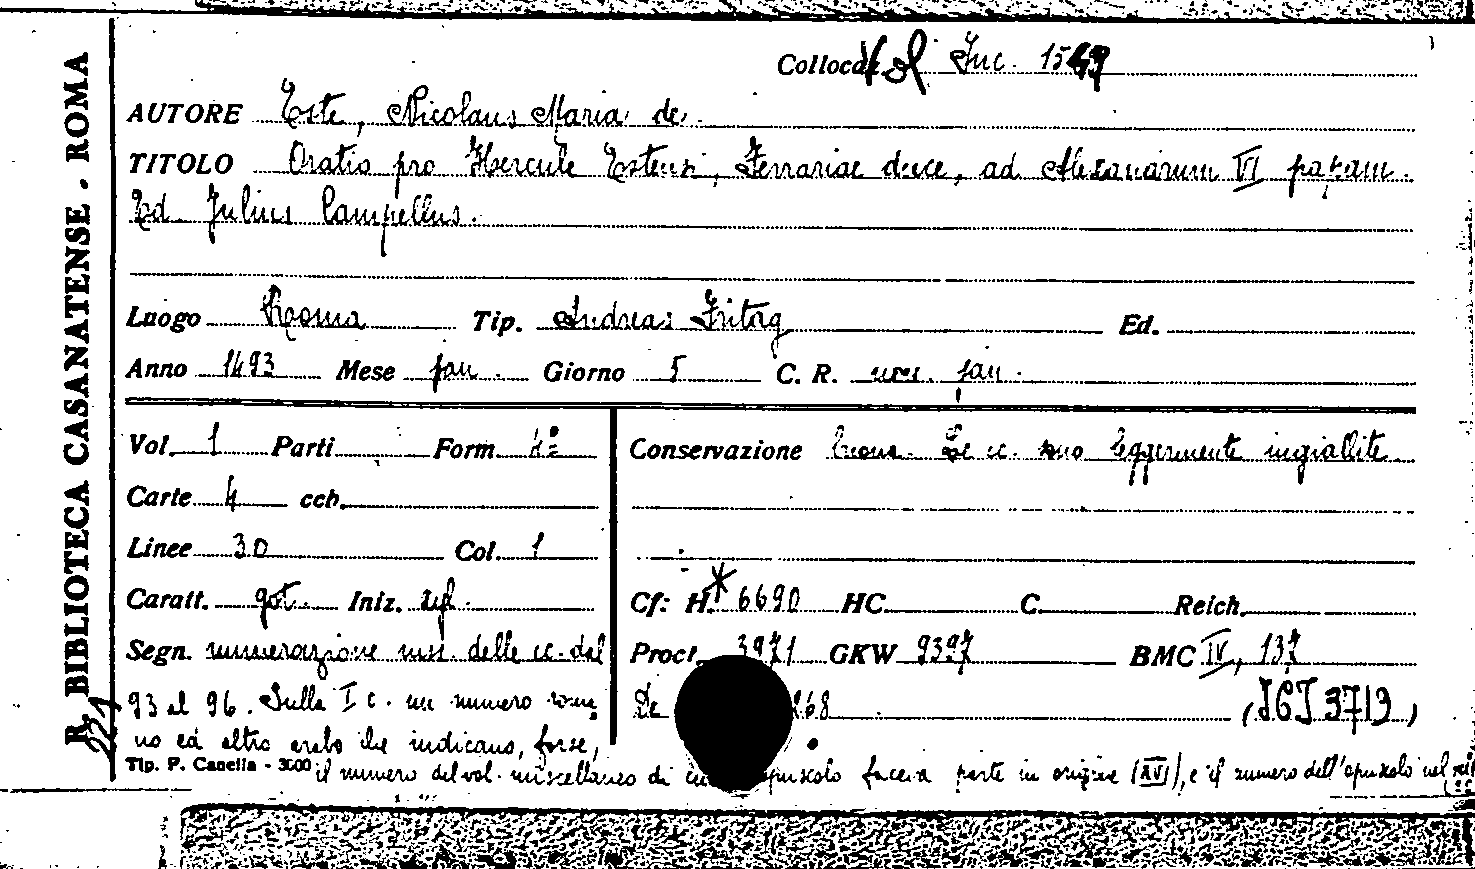 R. BIBLIOTECA CASANATENSE - ROMA
221
Colloca Vol Inc. 15
AUTORE Este, Nicolaus Maria de.
TITOLO Oratio pro Hercule Estensi, Ferrariae duce, ad Alexandrum VI papam.
Ed. Julius Campellus.
Luogo Roma Tip. Andreas Fritag Ed.
Anno 1493 Mese jan. Giorno 5 C. R. jan.
Vol. 1 Parti Form. 4º Conservazione buona. Le cc. sono leggermente ingiallite
Carte 4 cch.
Linee 30 Col. 1
Caratt. got. Iniz. Cf: H. * 6690 HC. C. Reich.
Segn. numerazione ms. delle cc. dal Proct. 3971 GKW 9397 BMC IV, 137
93 al 96. Sulla I c. un numero roma De 268 (IGI 3719)
no ed altro arabo che indicano, forse,
Tip. P. Canella - 3000 il numero del vol. miscellaneo di cui opuscolo faceva parte in origine (XVI), e il numero dell'opuscolo nel